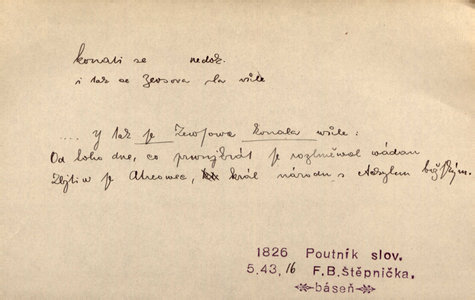 konati se nedok.
i tak se Zevsova
.... Y tak se Zewsowa konala wůle:
Od toho dne, co prwnjkrát se rozhněwal wádau
Atreowec, král národu, s božským.
1826 Poutník slov.
5,43,16 F.B.Štěpnička.
báseň